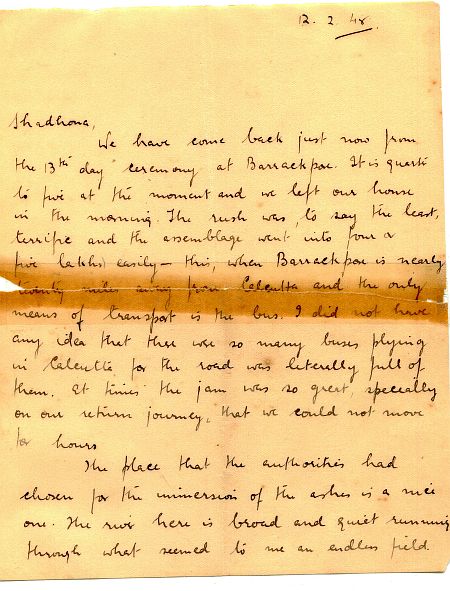 12. 2. 48.
Shadhona,
We have come back just now from
the 13th day ceremony at Barrackpore. It is quarter
to five at the moment and we left our house
in the morning. The rush was, to say the least,
terrific and the assemblage went into four or
five lakhs easily — this, when Barrackpore is nearly
twenty miles away from Calcutta and the only
means of transport is the bus. I did not have
any idea that there were so many buses plying
in Calcutta for the road was literally full of
them. At times the jam was so great, specially
on our return journey, that we could not move
for hours
The place that the authorities had
chosen for the immersion of the ashes is a nice
one. The river here is broad and quiet running
through what seemed to me an endless field.